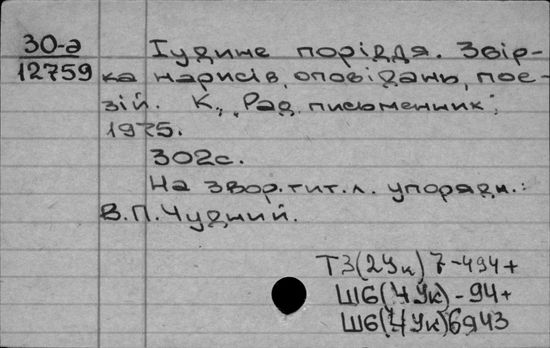 30-д
12759
Іудине поріддя. Збір-
ка нарисів, оповідань, пое-
зій. К., "Рад. письменник",
1975.
302с.
На звор. тит. л. упорядн.:
В.П.Чудний.
Т3(2Ук) 7-494+
Ш6(4Ук)-94+
Ш6(4Ук)6943